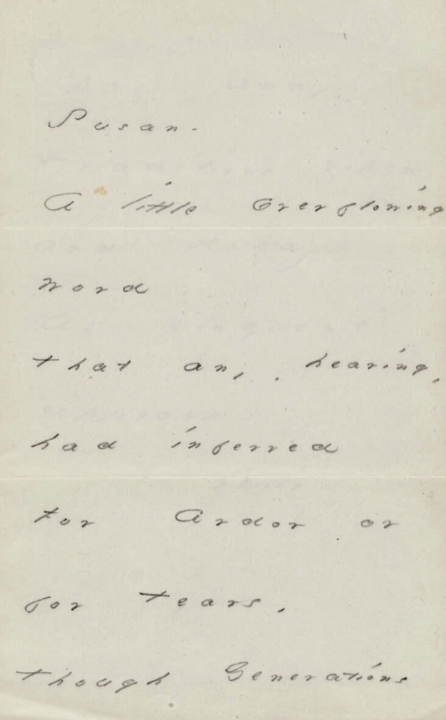 Susan.
A little overflowing
word
that any, hearing,
had inferred
for Ardor or
for Tears,
Though Generations